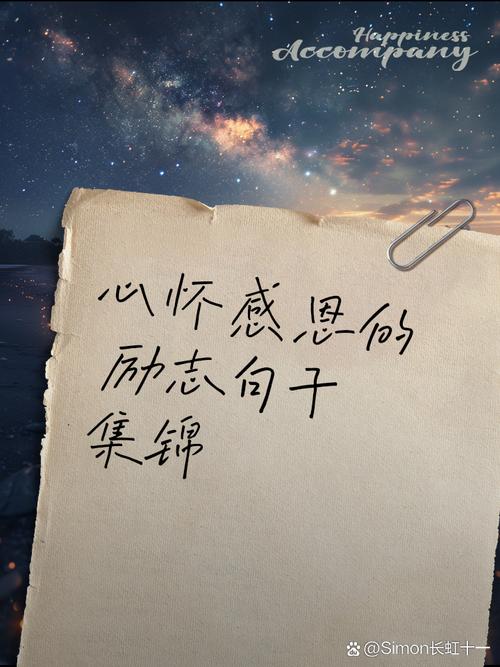 Happiness
Accompany
心怀感恩的
励志句子
集锦
@Simon长虹十一